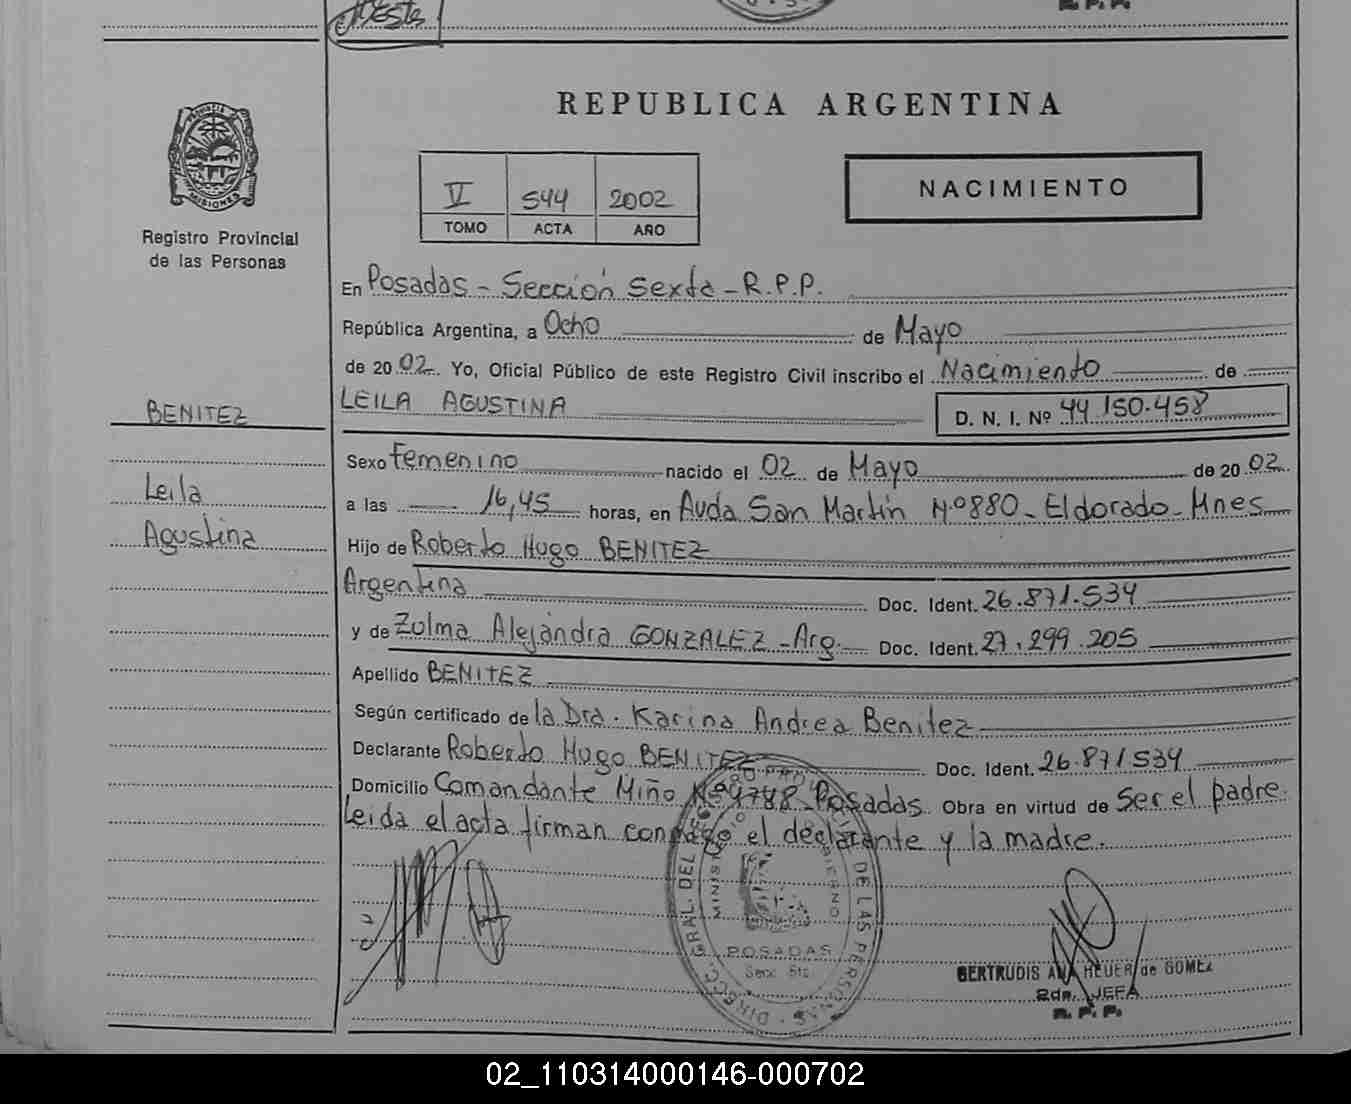 REPUBLICA ARGENTINA
PROVINCIA DE
MISIONES
Registro Provincial
de las Personas
V 544 2002
TOMO ACTA AÑO
NACIMIENTO
En Posadas - Sección Sexta - R.P.P.
República Argentina, a Ocho de Mayo
de 2002 Yo, Oficial Público de este Registro Civil inscribo el Nacimiento de
LEILA AGUSTINA D. N. I. Nº 44.150.458
BENITEZ
Leila
Agustina
Sexo femenino nacido el 02 de Mayo de 2002
a las 16,45 horas, en Avda San Martín Nº 880 - Eldorado - Mnes
Hijo de Roberto Hugo BENITEZ
Argentina Doc. Ident. 26.871.534
y de Zulma Alejandra GONZALEZ - Arg. Doc. Ident. 27.299.205
Apellido BENITEZ
Según certificado de la Dra. Karina Andrea Benitez
Declarante Roberto Hugo BENITEZ Doc. Ident. 26.871534
Domicilio Comandante Miño Nº 4788 Posadas Obra en virtud de Ser el padre.
Leida el acta firman conmigo el declarante y la madre.
POSADAS
GERTRUDIS ANA HEUER de GOMEZ
JEFA
R. P. P.
02_110314000146-000702